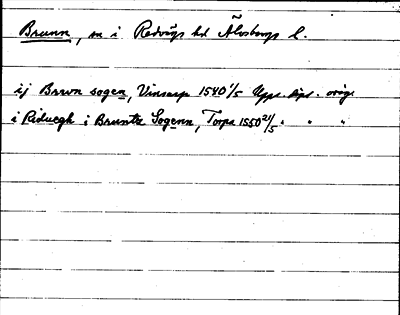 Brunn, sn i Redvägs hd Älvsborgs l.
ij Brwn sogen, Vinsarp 1540 1/5 Upps. dipl. orig.
i Reduegh i Bruntz Sogenn, Torpa 1550 21/5 " " "